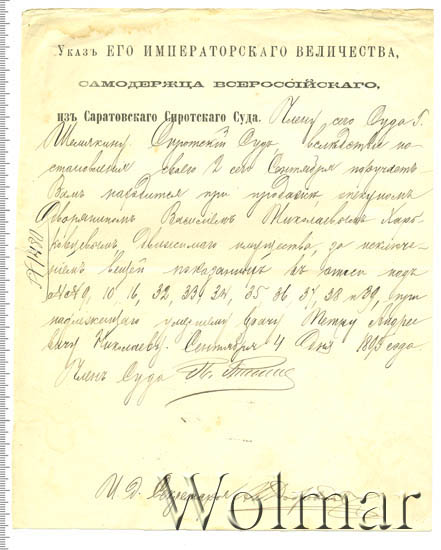 Указъ ЕГО ИМПЕРАТОРСКАГО ВЕЛИЧЕСТВА,
САМОДЕРЖЦА ВСЕРОССІЙСКАГО,
изъ Саратовскаго Сиротскаго Суда. Члену сего Суда Г.
Шемякину. Сиротскій Судъ, вслѣдствіе по-
становленія своего 2 сего Сентября поручаетъ
Вамъ находится при продажѣ опекуномъ
Дворяниномъ Василіемъ Николаевичемъ
движимаго имущества, за исключе-
ніемъ вещей показанныхъ въ описи подъ
№№ 9, 10, 16, 32, 33, 34, 35, 36, 37, 38 и 39, при-
надлежащаго умершему врачу Петру Андрее-
вичу Николаеву. Сентября 4 дня 1893 года
Членъ Суда
И. Д. Секретаря
Wolmar